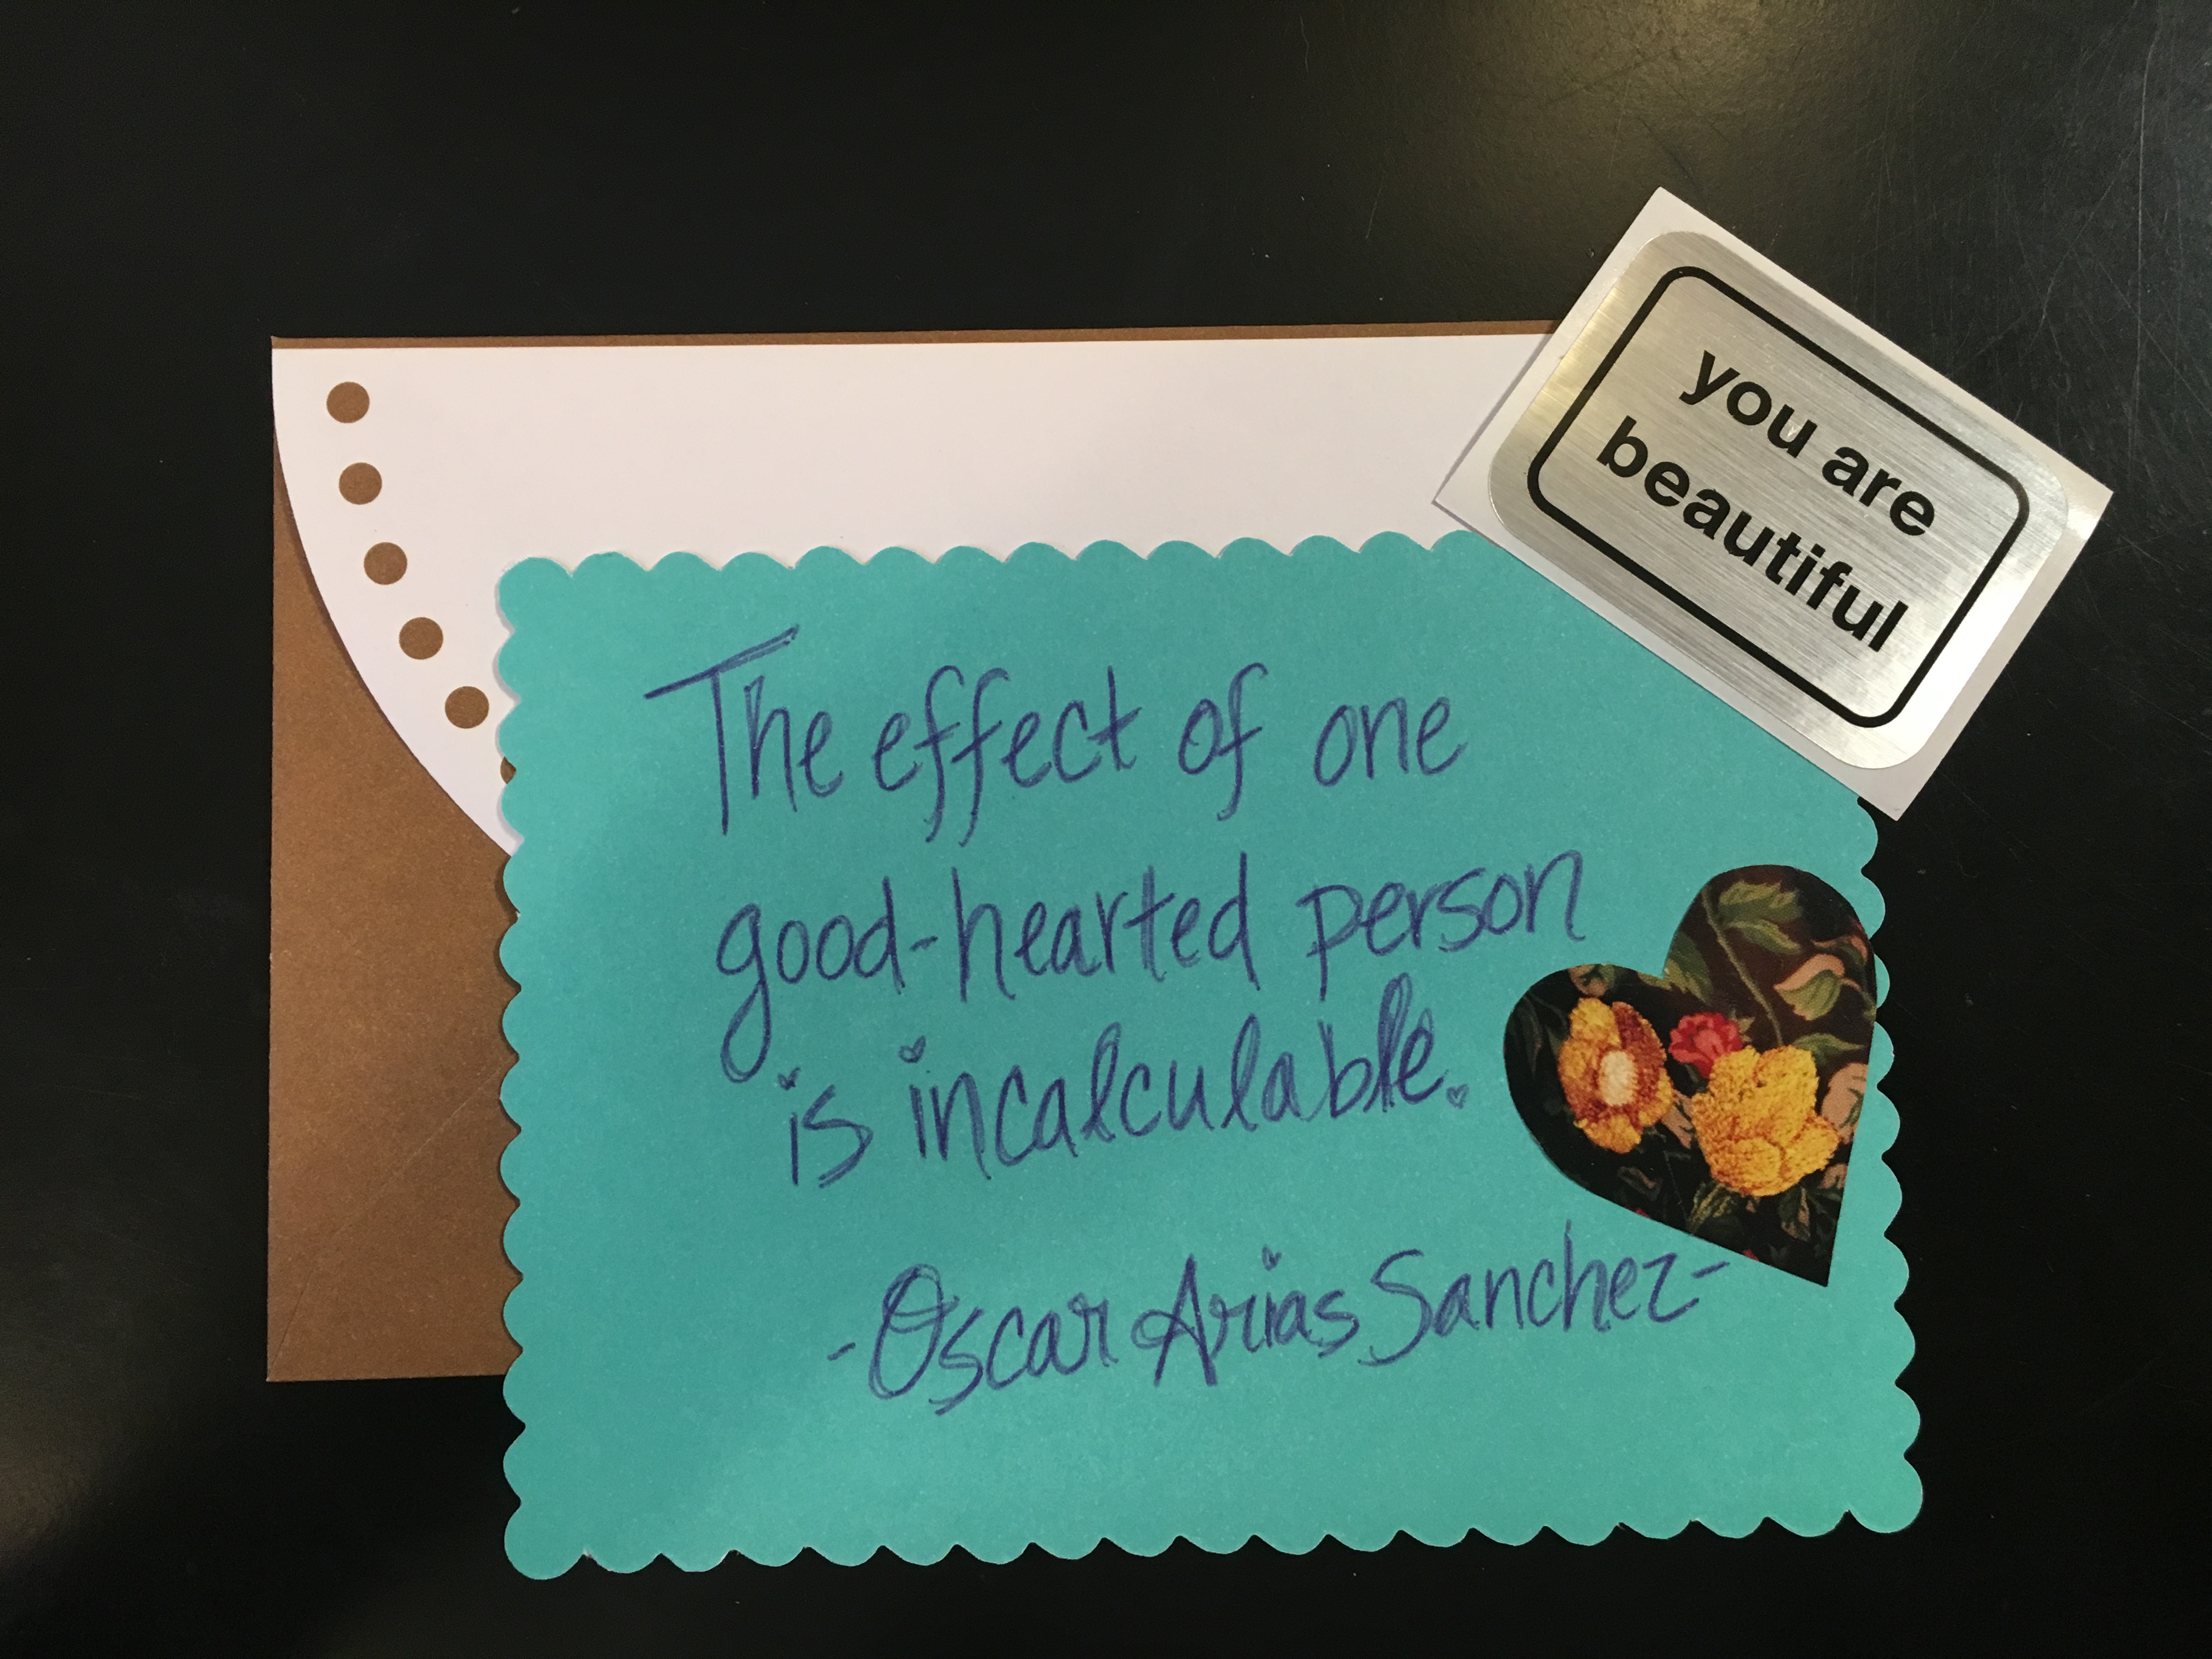 you are
beautiful
The effect of one
good-hearted person
is incalculable.
-Oscar Arias Sanchez-